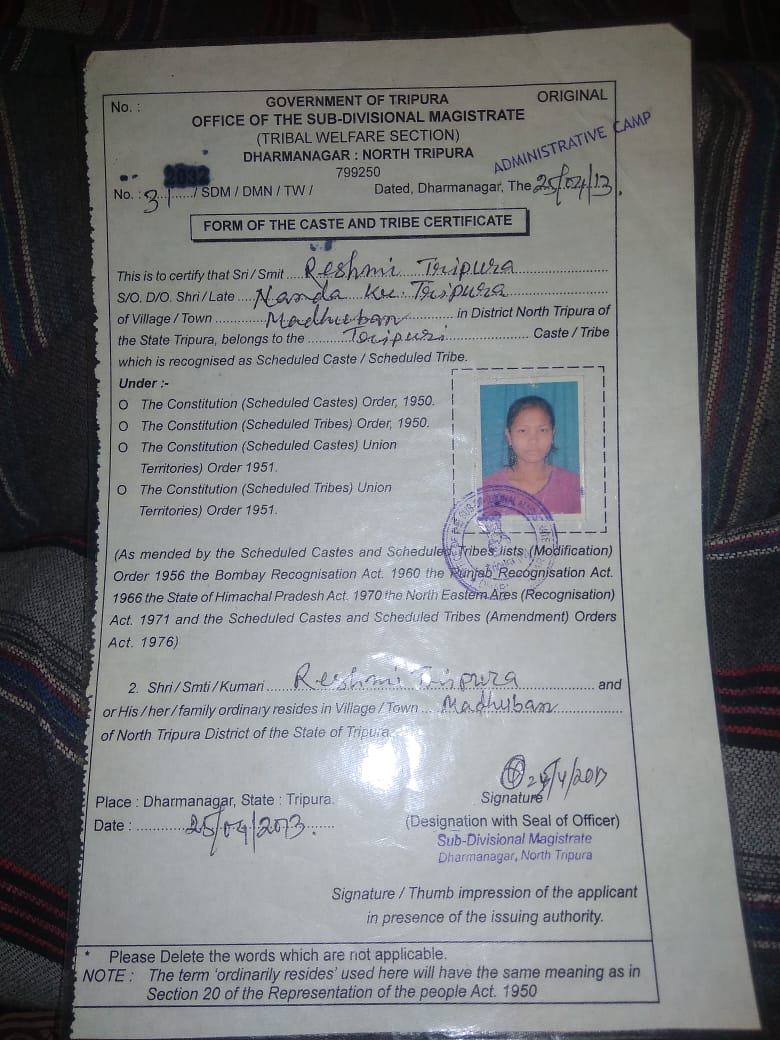 No. :
GOVERNMENT OF TRIPURA
ORIGINAL
OFFICE OF THE SUB-DIVISIONAL MAGISTRATE
(TRIBAL WELFARE SECTION)
DHARMANAGAR : NORTH TRIPURA
ADMINISTRATIVE CAMP
799250
2032
No. : 31/ SDM / DMN / TW / Dated, Dharmanagar, The 25/04/13.
FORM OF THE CASTE AND TRIBE CERTIFICATE
This is to certify that Sri / Smit Reshmi Tripura
S/O. D/O. Shri / Late Nanda Kr. Tripura
of Village / Town Madhuban in District North Tripura of
the State Tripura, belongs to the Tripuri Caste / Tribe
which is recognised as Scheduled Caste / Scheduled Tribe.
Under :-
O The Constitution (Scheduled Castes) Order, 1950.
O The Constitution (Scheduled Tribes) Order, 1950.
O The Constitution (Scheduled Castes) Union
Territories) Order 1951.
O The Constitution (Scheduled Tribes) Union
Territories) Order 1951.
(As mended by the Scheduled Castes and Scheduled Tribes lists (Modification)
Order 1956 the Bombay Recognisation Act. 1960 the Punjab Recognisation Act.
1966 the State of Himachal Pradesh Act. 1970 the North Eastern Ares (Recognisation)
Act. 1971 and the Scheduled Castes and Scheduled Tribes (Amendment) Orders
Act. 1976)
2. Shri / Smti / Kumari Reshmi Tripura and
or His / her / family ordinary resides in Village / Town Madhuban
of North Tripura District of the State of Tripura.
Place : Dharmanagar, State : Tripura.
Signature
Date : 25/04/2013.
(Designation with Seal of Officer)
Sub-Divisional Magistrate
Dharmanagar, North Tripura
Signature / Thumb impression of the applicant
in presence of the issuing authority.
* Please Delete the words which are not applicable.
NOTE : The term 'ordinarily resides' used here will have the same meaning as in
Section 20 of the Representation of the people Act. 1950